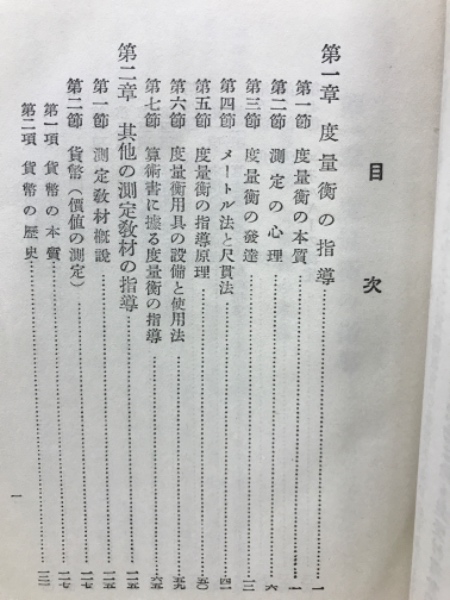 目次
第一章 度量衡の指導……一
第一節 度量衡の本質……一
第二節 測定の心理……六
第三節 度量衡の發達……一二
第四節 メートル法と尺貫法……四一
第五節 度量衡の指導原理……五〇
第六節 度量衡用具の設備と使用法……五九
第七節 算術書に據る度量衡の指導……六五
第二章 其他の測定敎材の指導……一一五
第一節 測定敎材槪說……一一五
第二節 貨幣(價値の測定)……一一七
第一項 貨幣の本質……一一七
第二項 貨幣の歷史
一